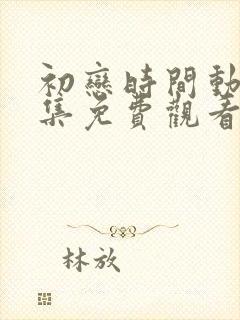 初戀時間動
集免費觀看
林放